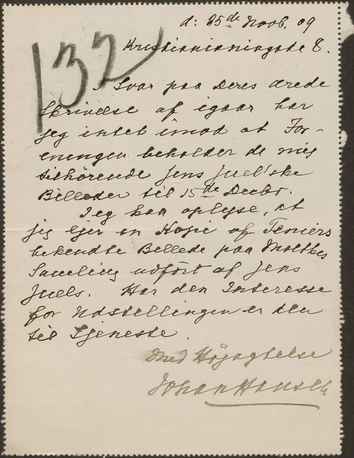 132
d: 25de Novb. 09
Kristianiagade 8.
I Svar paa Deres ærede
Skrivelse af igaar har
jeg intet imod at For-
eningen beholder de mig
tilhörende Jens Juel'ske
Billeder til 15de Decbr.
Jeg kan oplyse, at
jeg ejer en Kopie af Teniers
bekendte Billede paa Moltkes
Samling udfört af Jens
Juels. Har den Interesse
for Udstillingen er den
til Tjeneste.
Med Höjagtelse
Johan Hansen